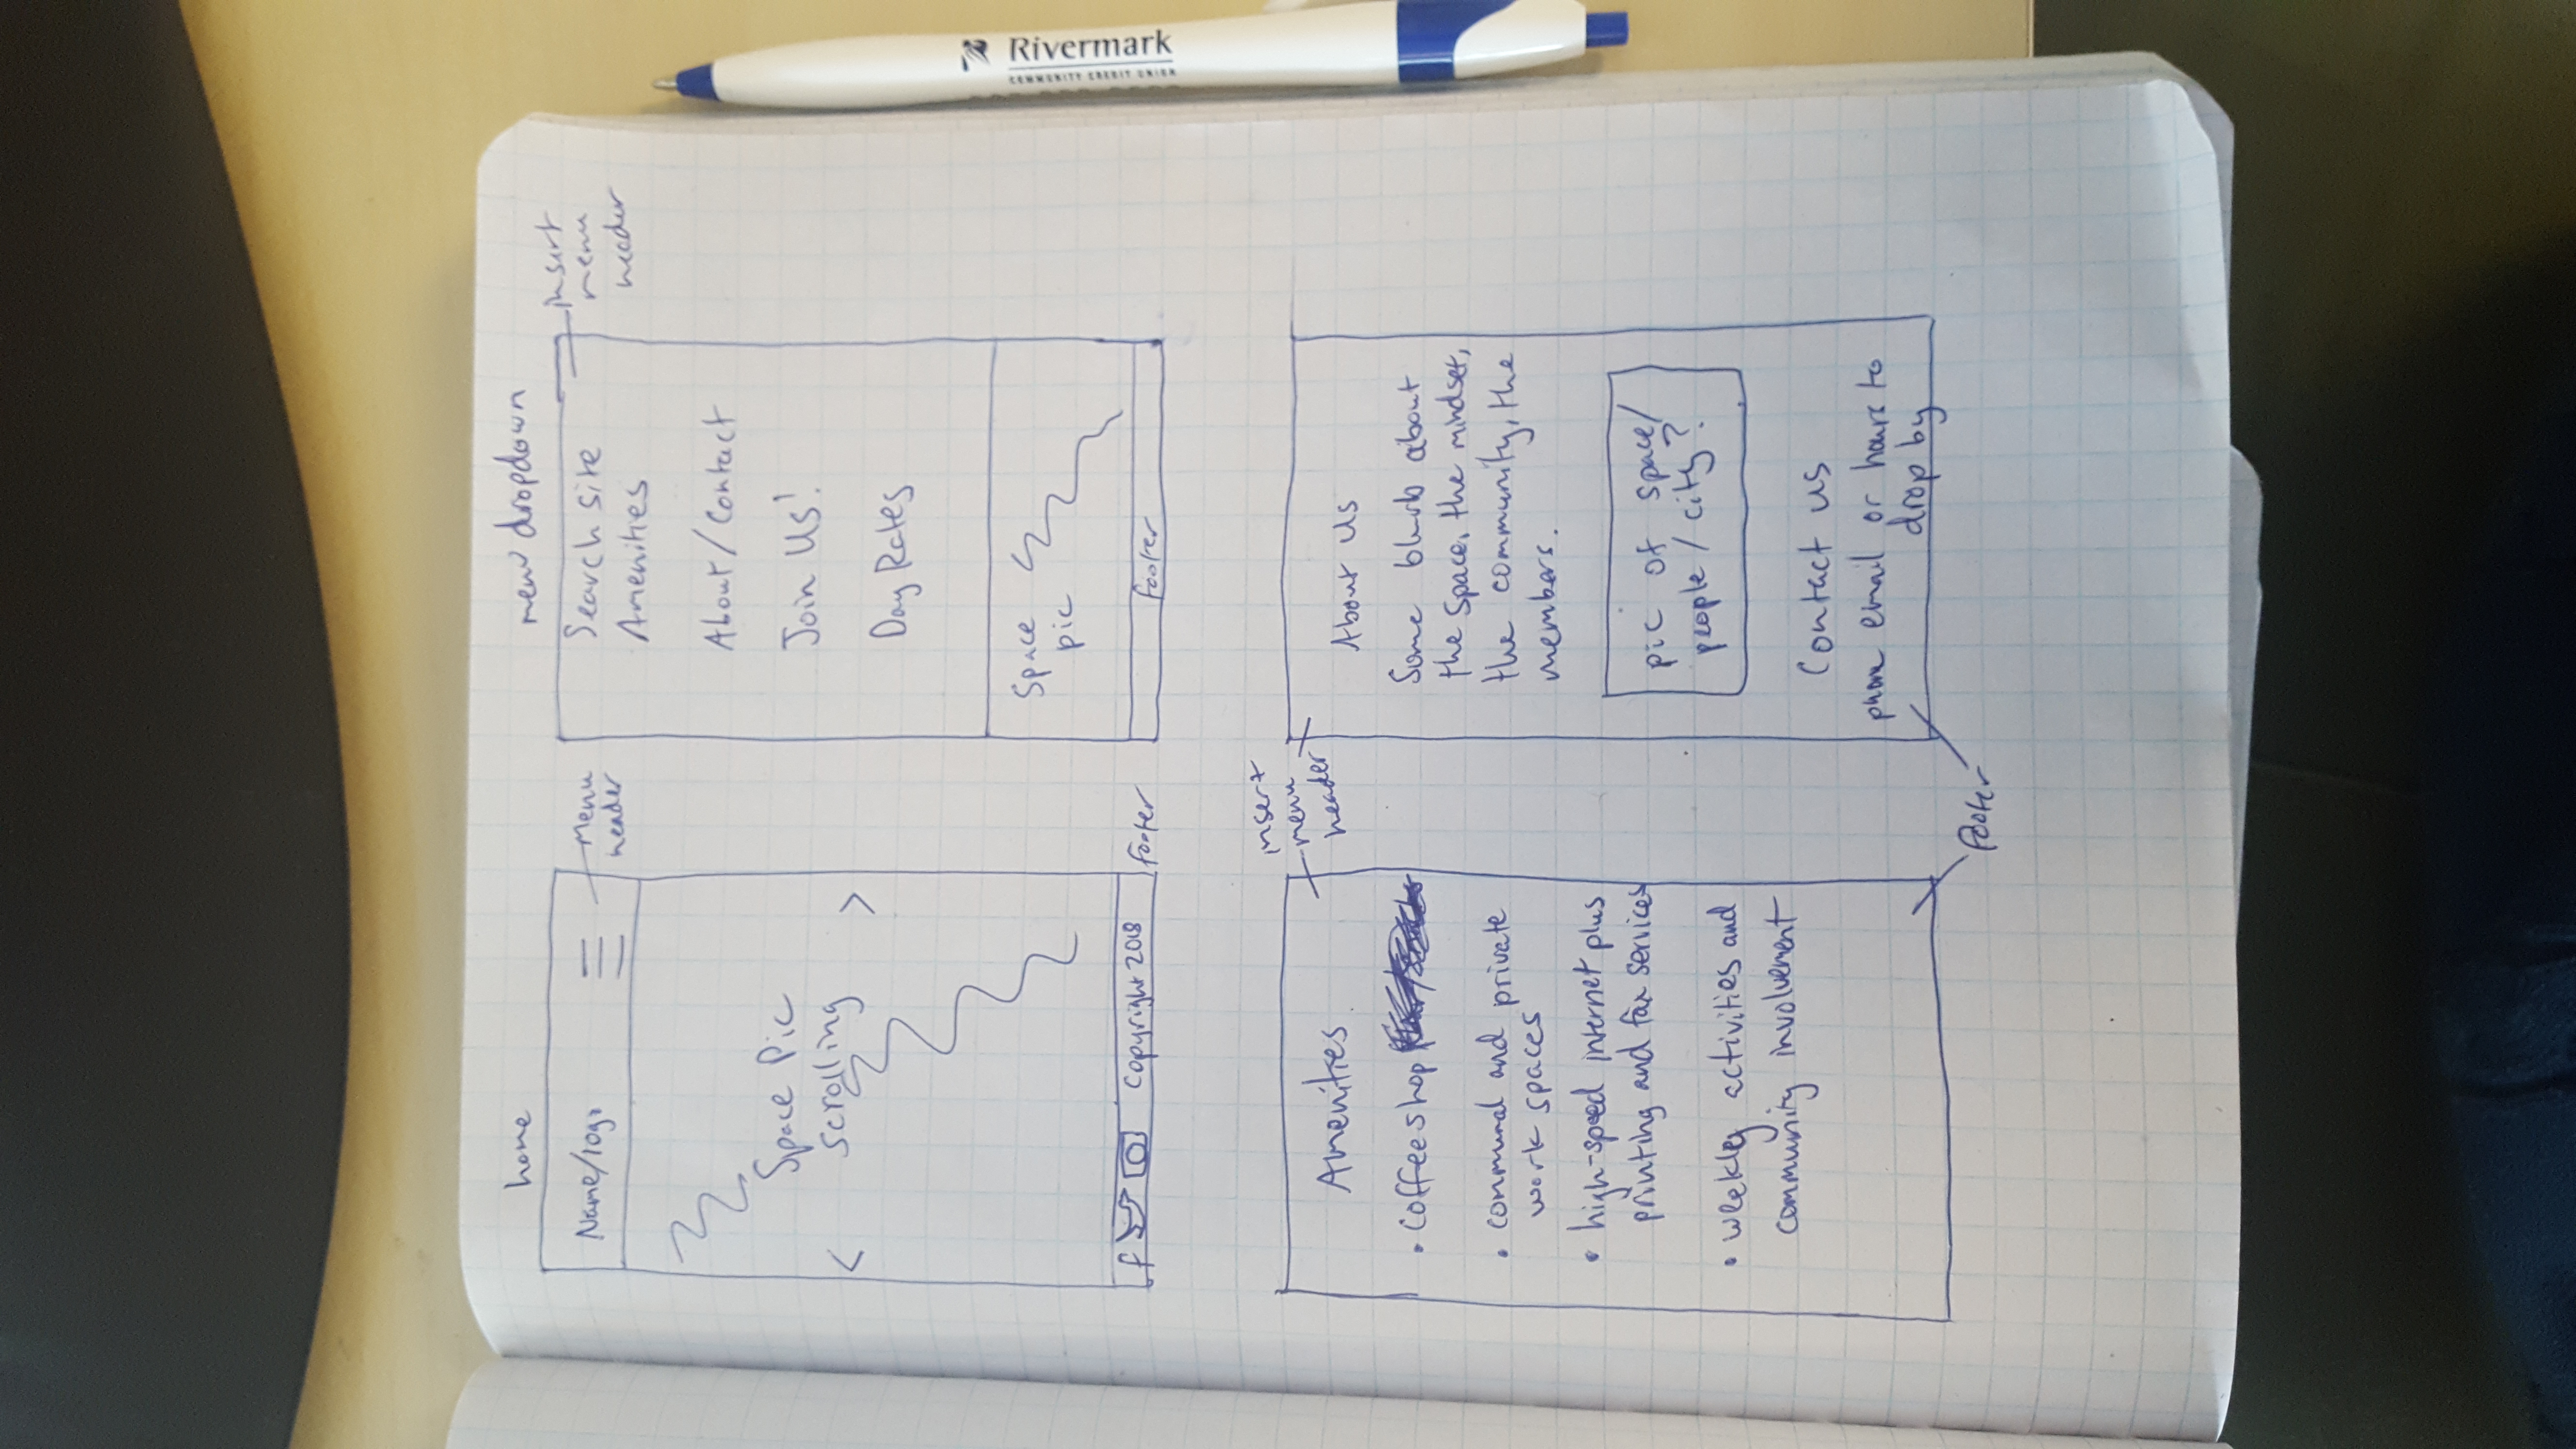 home
Name/logo
Menu
header
Space Pic
scrolling
< >
f Copyright 2018
footer
menu dropdown
insert
menu
header
Search site
Amenities
About/Contact
Join Us!
Day Rates
Space
pic
footer
insert
menu
header
Amenities
• coffee shop
• communal and private
work spaces
• high-speed internet plus
printing and fax services
• weekly activities and
community involvement
About Us
Some blurb about
the space, the mindset,
the community, the
members.
pic of space/
people/city?
Contact us
phone email or hours to
drop by
footer
Rivermark
COMMUNITY CREDIT UNION